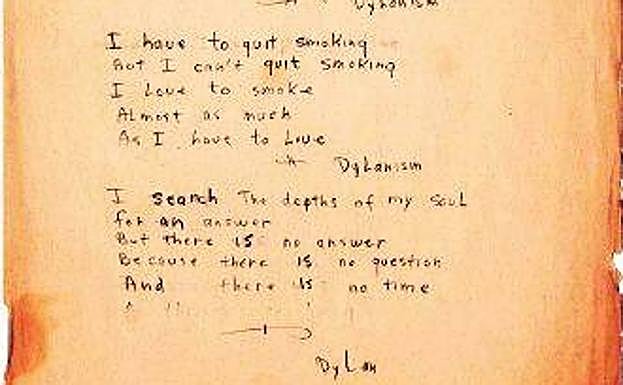 Dylanism
I have to quit smoking
But I can't quit smoking
I Love to smoke
Almost as much
As I have to Love
Dylanism
I search The depths of my Soul
for an answer
But there is no answer
Because there is no question
And there is no time
Dylan